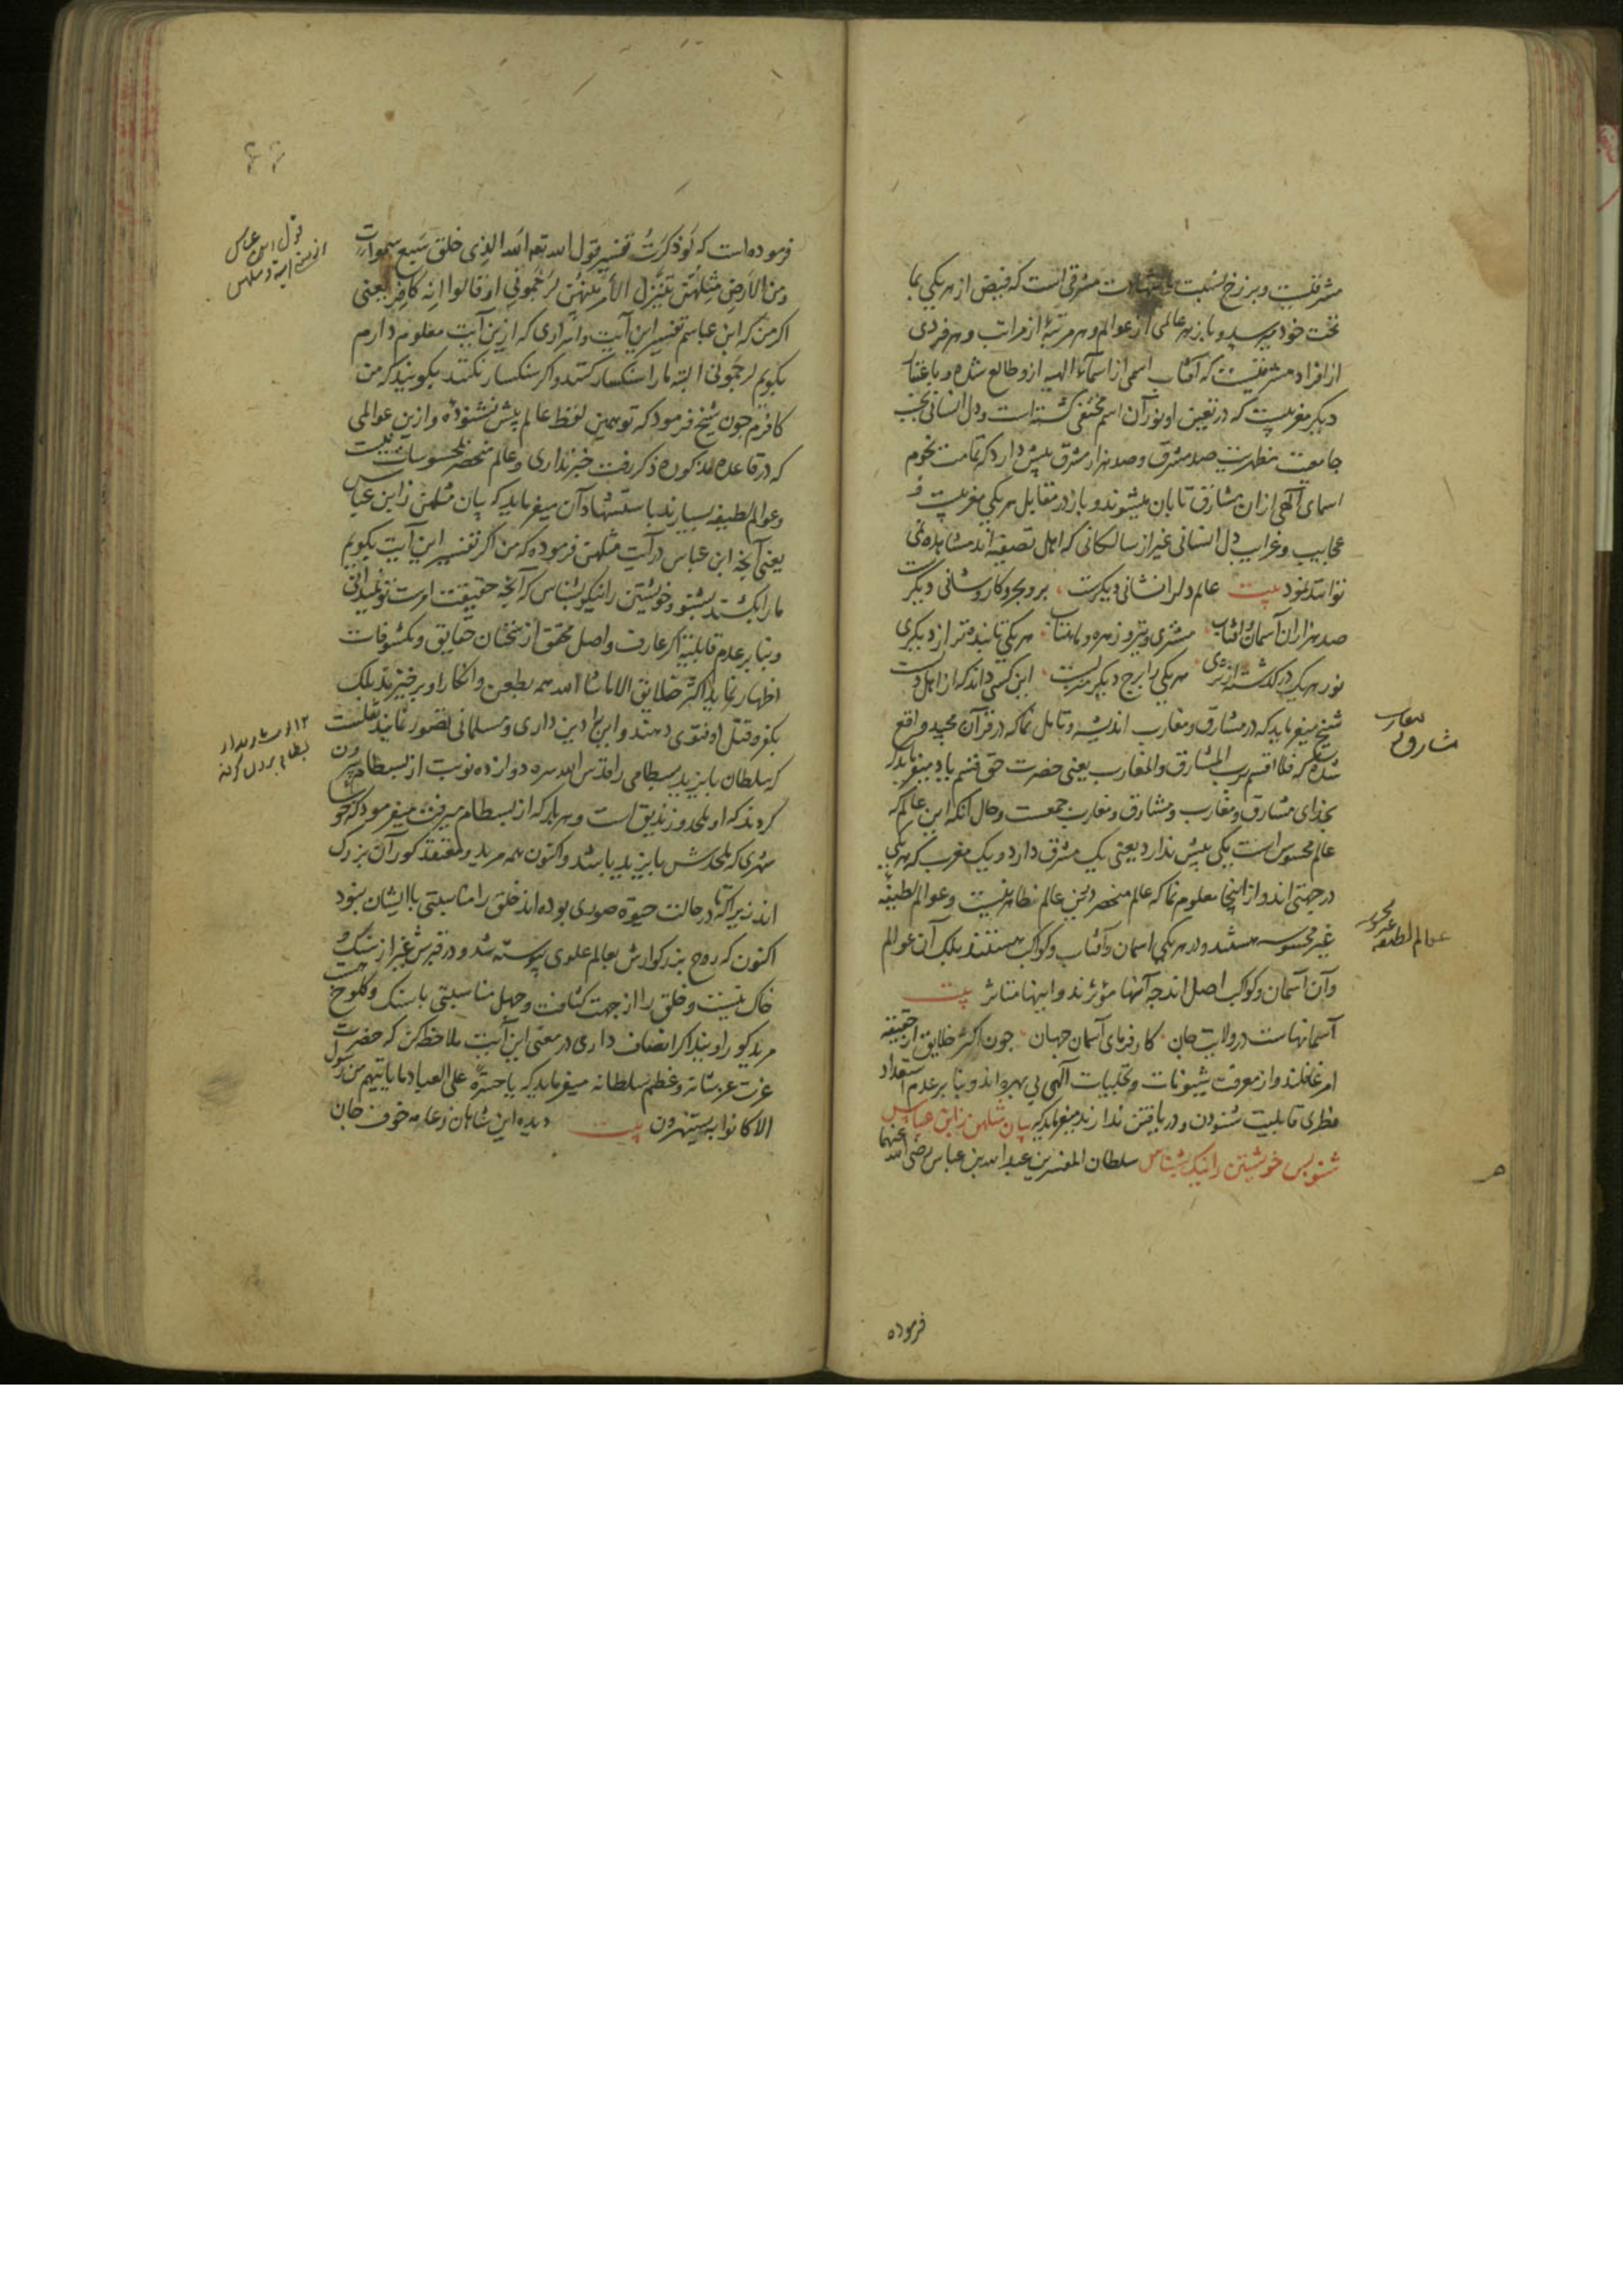 مشرقیست و برزخ نسبت با شهادت مشرقی است که فیض از هر یکی بما
تحت خود میرسد و باز هر عالمی از عوالم و هر مرتبهٔ از مراتب و هر فردی
از افراد مشرقیست که آفتاب اسمی از اسماء الهیه ازو طالع شده و باعتبار
دیکر مغربیست که در تعین او نور آن اسم مختفی کشته است و دل انسانی بحسب
جامعیت مظهریت صد مشرق و صد هزار مشرق بیش دارد که تمامت نجوم
اسمای آلهی ازان مشارق تابان میشوند و باز در مقابل هر یکی مغربیست و
عجایب و غرایب دل انسانی غیر از سالکانی که اهل تصفیه اند مشاهده نمی
توانند نمود بیت عالم دل را نشانی دیکرست ، بر و بحر و کار و شانی دیکرست
صد هزاران آسمان و آفتاب مشتری و تیر و زهره و ماهتاب هر یکی تابنده تر از دیکری
نور هر یک در کذشته از ثری هر یکی را برج دیکر منزلیست این کسی داند که از اهل دلست
شیخ میفرماید که در مشارق و مغارب اندیشه و تامل نما که در قرآن مجید واقع
شده که فلا اقسم برب المشارق والمغارب یعنی حضرت حق قسم یاد میفرماید که
بخدای مشارق و مغارب و مشارق و مغارب جمعست و حال آنکه این عالم که
عالم محسوس است یکی بیش ندارد یعنی یک مشرق دارد و یک مغرب که هر یکی
در جهتی اند و از اینجا معلوم نما که عالم منحصر درین عالم ظاهر نیست و عوالم لطیفه
غیر محسوسه هستند و در هر یکی اسمان و آفتاب و کواکب هستند بلک آن عوالم
و آن آسمان و کواکب اصل اند چه آنها مؤثرند و اینها متاثر بیت
آسمانهاست در ولایت جان کارفرمای آسمان جهان جون اکثر خلایق از حقیقه
امر غافلند و از معرفت شیونات و تجلییات آلهی بی بهره اند و بنا بر عدم استعداد
فطری قابلیت شنودن و دریافتن ندارند میفرماید که بیان مثلهن ز ابن عباس
شنو پس خویشتن را نیک بشناس سلطان المفسرین عبدالله بن عباس رضی الله عنهما
مغارب
مشارق
عوالم لطیفه
فرموده
فرموده است که لو ذکرت تفسیر قول الله تعه الله الذی خلق سبع سموات
ومن الارض مثلهن یتنزل الامر بینهن لرجمونی او قالوا انه کافر یعنی
اکر من که ابن عباسم تفسیر این آیت و اسراری که ازین آیت معلوم دارم
بکویم لرجمونی البته مارا سنکسار کنند و اکر سنکسار نکنند بکویند که من
کافرم جون شیخ فرمود که تو همین لفظ عالم پیش نشنودهٔ و ازین عوالمی
که در قاعده مذکوره ذکر رفت خبر نداری و عالم منحصر بمحسوسات نیست
و عوالم لطیفه بسیارند باستشهاد آن میفرماید که بیان مثلهن ز ابن عباس
یعنی آنجه ابن عباس در آیت مثلهن فرموده که من اکر تفسیر این آیت بکویم
مارا بکشند بشنو و خویشتن را نیکو بشناس که آنجه حقیقت امرست تو نمیدانی
و بنا بر عدم قابلیة اکر عارف واصل محقق از سخنان حقایق و مکشوفات
اظهار نماید اکثر خلایق الا ماشا الله همه بطعن و انکار او برخیزند بلک
بکفر و قتل او فتوی دهند و این را دین داری و مسلمانی تصور نمایند نقلست
که سلطان بایزید بسطامی را قدس الله سره دوازده نوبت از بسطام بیرون
کردند که او ملحد و زندیق است و هر بار که از بسطام میرفت میفرمود که خوشا
شهری که ملحدش بایزید باشد و اکنون همه مرید و معتقد کور آن بزرک
اند زیرا که تا در حالت حیوة صوری بوده اند خلق را مناسبتی با ایشان نبود
اکنون که روح بزرکوارش بعالم علوی پیوسته شد و در قبرش غیر از سنک و
خاک نیست و خلق را از جهت کثافت و جهل مناسبتی با سنک و کلوخ هست
مرید کور اویند اکر انصاف داری در معنی این آیت ملاحظه کن که حضرت
عزت عز شانه و عظم سلطانه میفرماید که یا حسرة علی العباد ما یاتیهم من رسول
الا کانوا به یستهزون بیت دیده این شاهان ز عامه خوف جان
قول ابن عباس